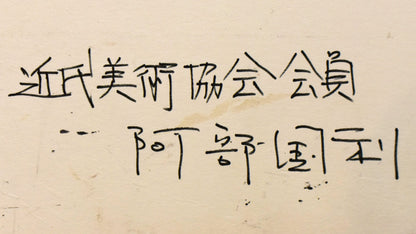 近氏美術協会会員
阿部国利